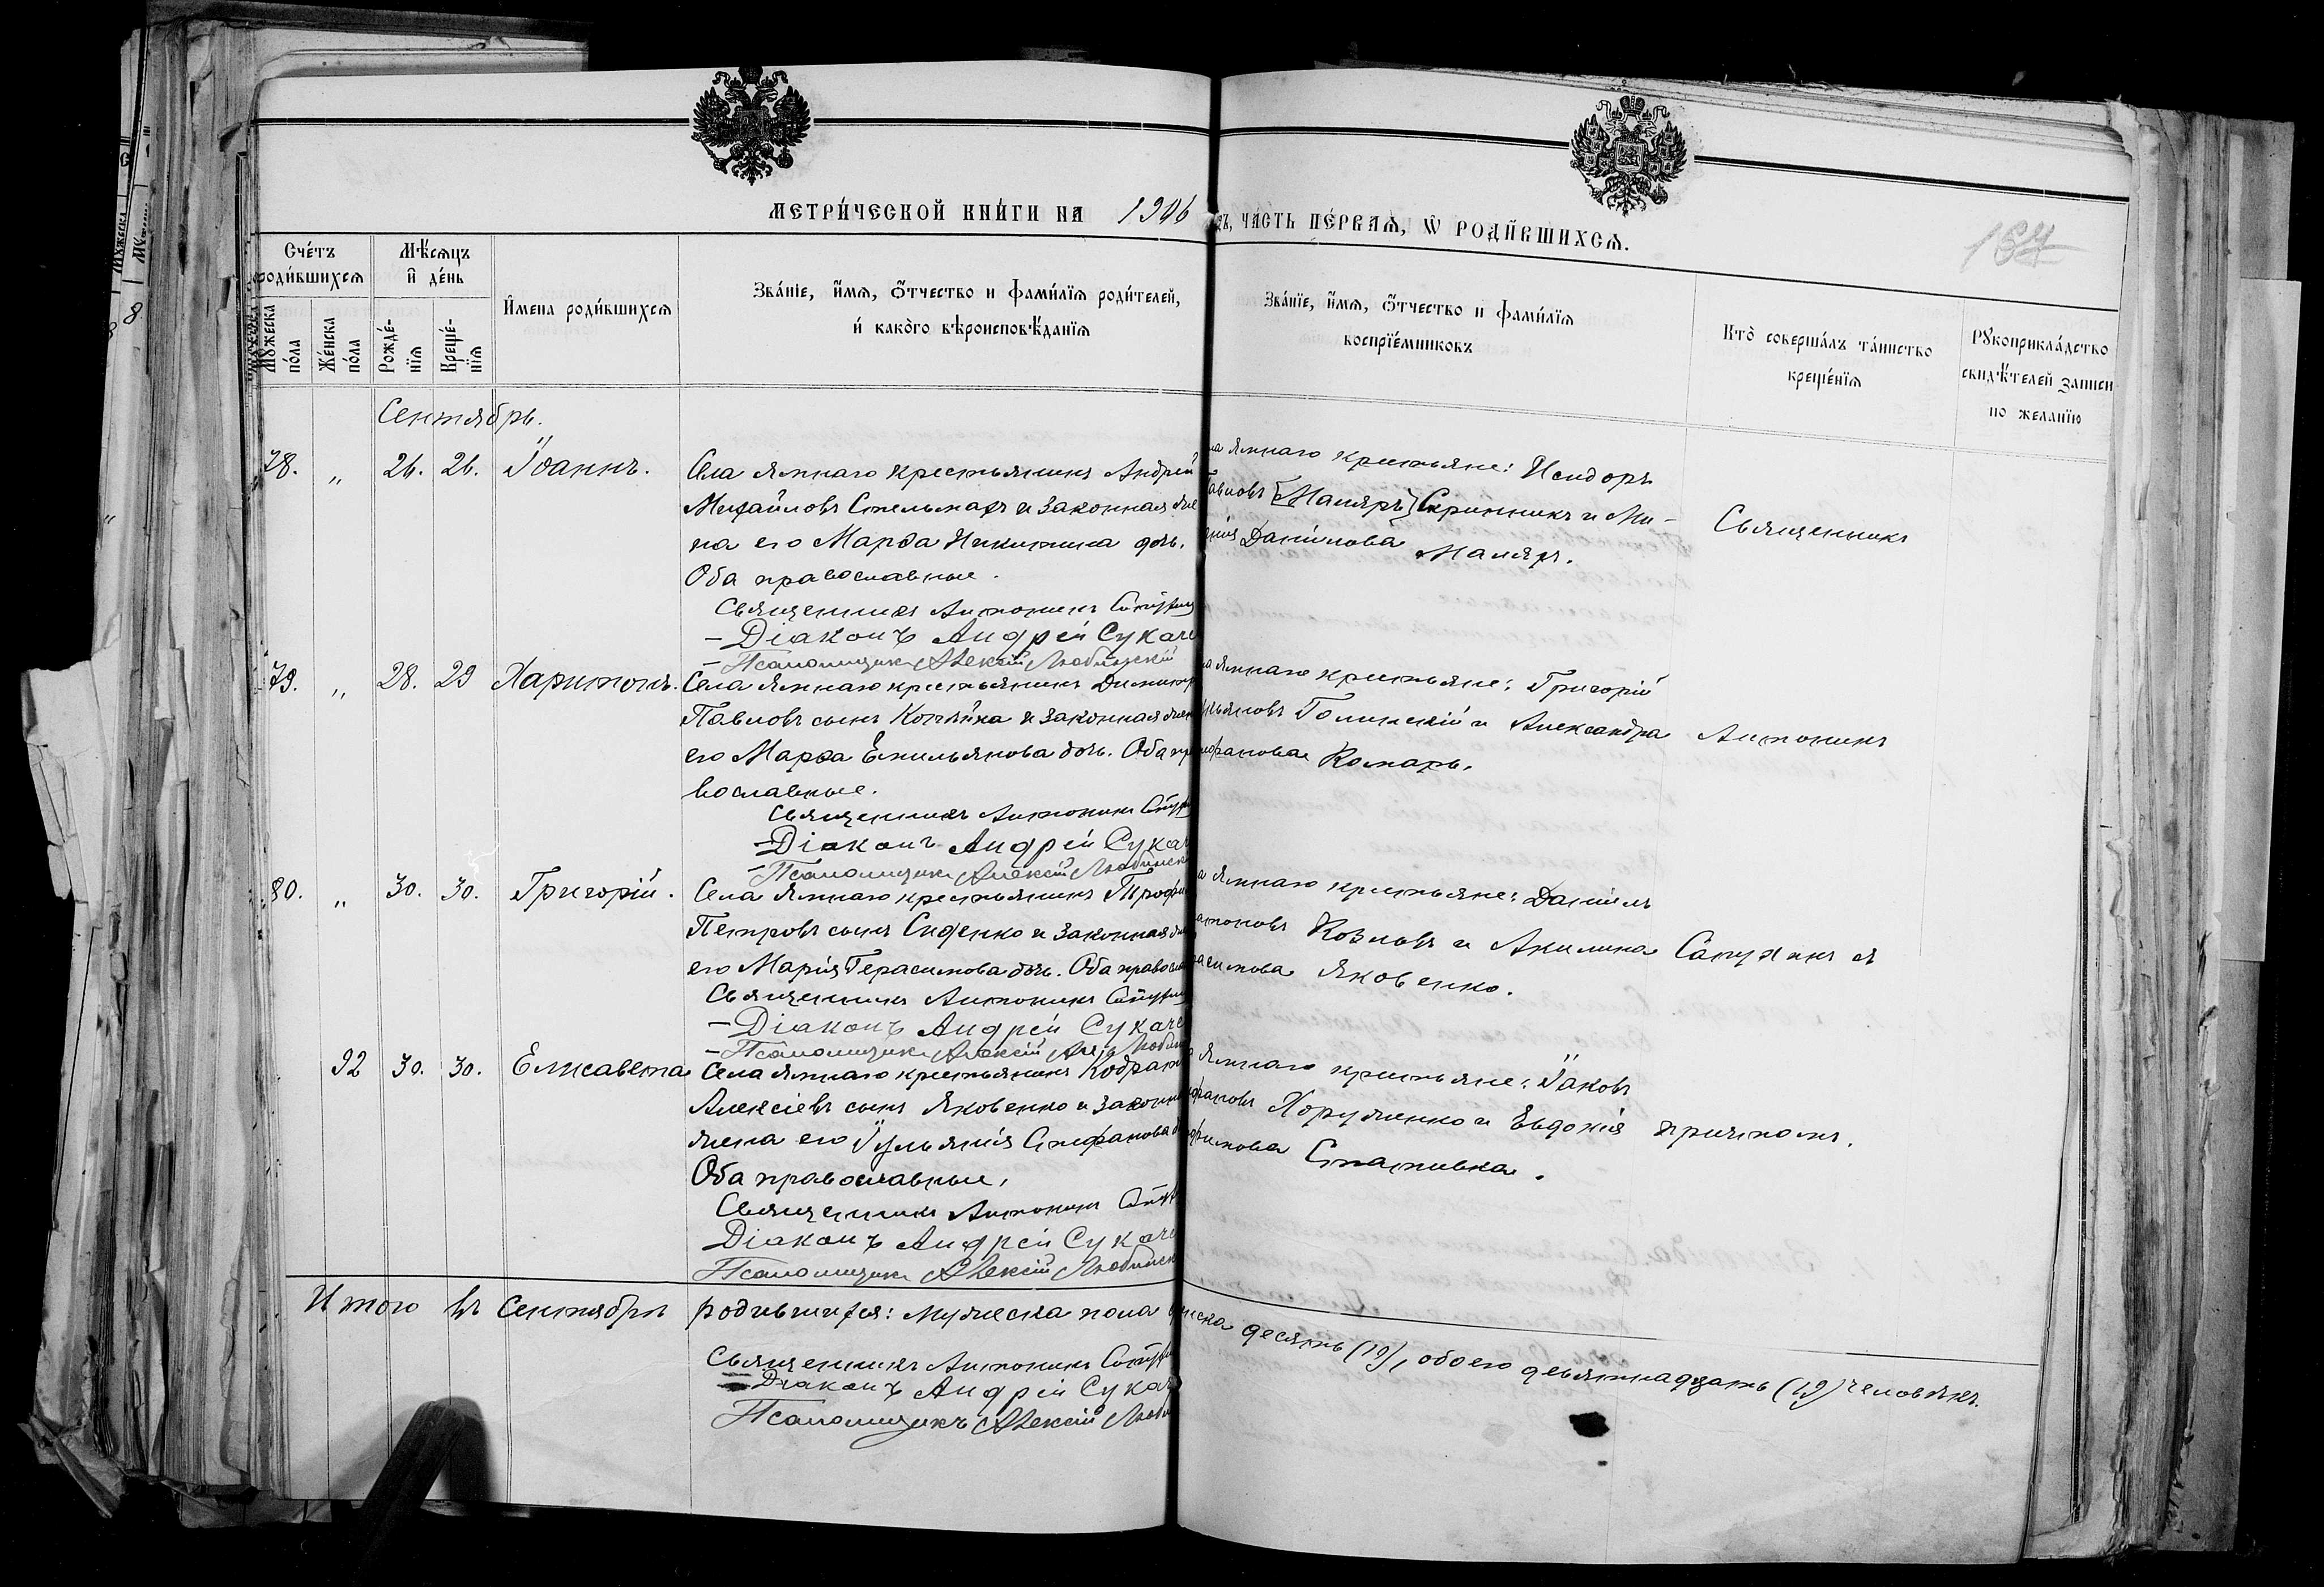 МЕТРИЧЕСКОЙ КНИГИ НА 1906
ЧАСТЬ ПЕРВАЯ, Ѡ РОДИВШИХСЯ.
Счетъ родившихся
Мужеска пола
Женска пола
Мѣсяцъ и день
Рожденія
Крещенія
Имена родившихся
Званіе, имя, отчество и фамилія родителей,
и какого вѣроисповѣданія
Званіе, имя, отчество и фамилія
воспріемниковъ
Кто совершалъ таинство
крещенія
Рукоприкладство
свидѣтелей записи
по желанію
Сентябрь.
78. „ 26. 26. Іоаннъ.
Села Ямнаго крестьянинъ Андрей
Михайловъ Стельмахъ и законная же
на его Марѳа Никитина дочь.
Оба православные.
Священникъ Антонинъ
Діаконъ Андрей
Псаломщикъ Алексій Любинскій
Ямнаго крестьяне: Исидоръ
Павловъ [Маляръ] Скринникъ и
Данилова Маляръ.
Священникъ
79. „ 28. 29 Харитонъ.
Села Ямнаго крестьянинъ
Павловъ сынъ Копѣйка и законная
его Марѳа Емельянова дочь. Оба пра
вославные.
Священникъ Антонинъ
Діаконъ Андрей
Псаломщикъ Алексій
Ямнаго крестьяне: Григорій
Голинскій и Александра
Комаръ.
Антонинъ
80. „ 30. 30. Григорій.
Села Ямнаго крестьянинъ
Петровъ сынъ Сиденко и законная
его Марія Герасимова дочь. Оба
Священникъ Антонинъ
Діаконъ Андрей
Псаломщикъ Алексій
Ямнаго крестьяне: Даніилъ
Козловъ и Акилина
Яковенко.
92 30. 30. Елисавета
Села Ямнаго крестьянинъ Кодратъ
Алексіевъ сынъ Яковенко и
жена его Іульянія Стефанова
Оба православные,
Священникъ Антонинъ
Діаконъ Андрей
Псаломщикъ Алексій
Ямнаго крестьяне: Іаковъ
Хоруженко и Евдокія
Стативка.
причтомъ.
Итого въ Сентябрѣ родившихся: мужеска пола
десять (10), обоего девятнадцать (19) человѣкъ.
Священникъ Антонинъ
Діаконъ Андрей
Псаломщикъ Алексій